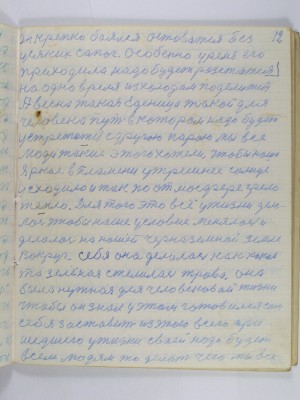 он крепко боялся остоватся без 12
усяких сапог. Особенно уремя его
приходила надо будет розстатся
на одно время изхолодом поделится
А весна такая Едениця такой для
человека путь в котором надо будет
устретится здругою парою мы все
люди такие этого хотели, чтобы наше
яркое в пламени утреннее солнце
усходило и так по атмосфере грело
тепло. Для того это всё ужизни
чтобы наше условие менялось
делалось на нашей черназёмной земле
вокруг себя она делилась как
зелёная стелилась трава, она
была нужная для человековой жизни
чтобы он знал у этом готовился сам
себя заставить из этого всего при
шедшего ужизни своей надо будет
всем людям то делать чего мы все